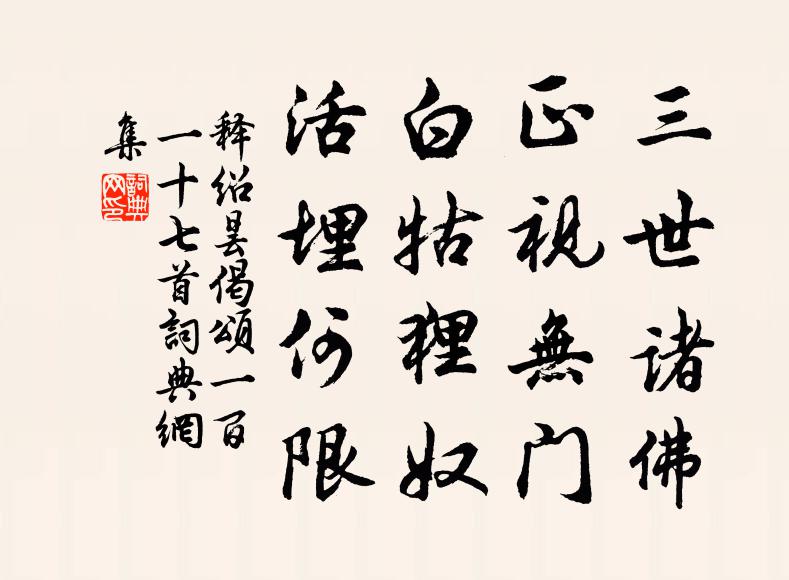 三世诸佛
正视無门
白牯狸奴
活埋何限
释绍昙偈颂一百
一十七首詞典網
集
詞典
网印